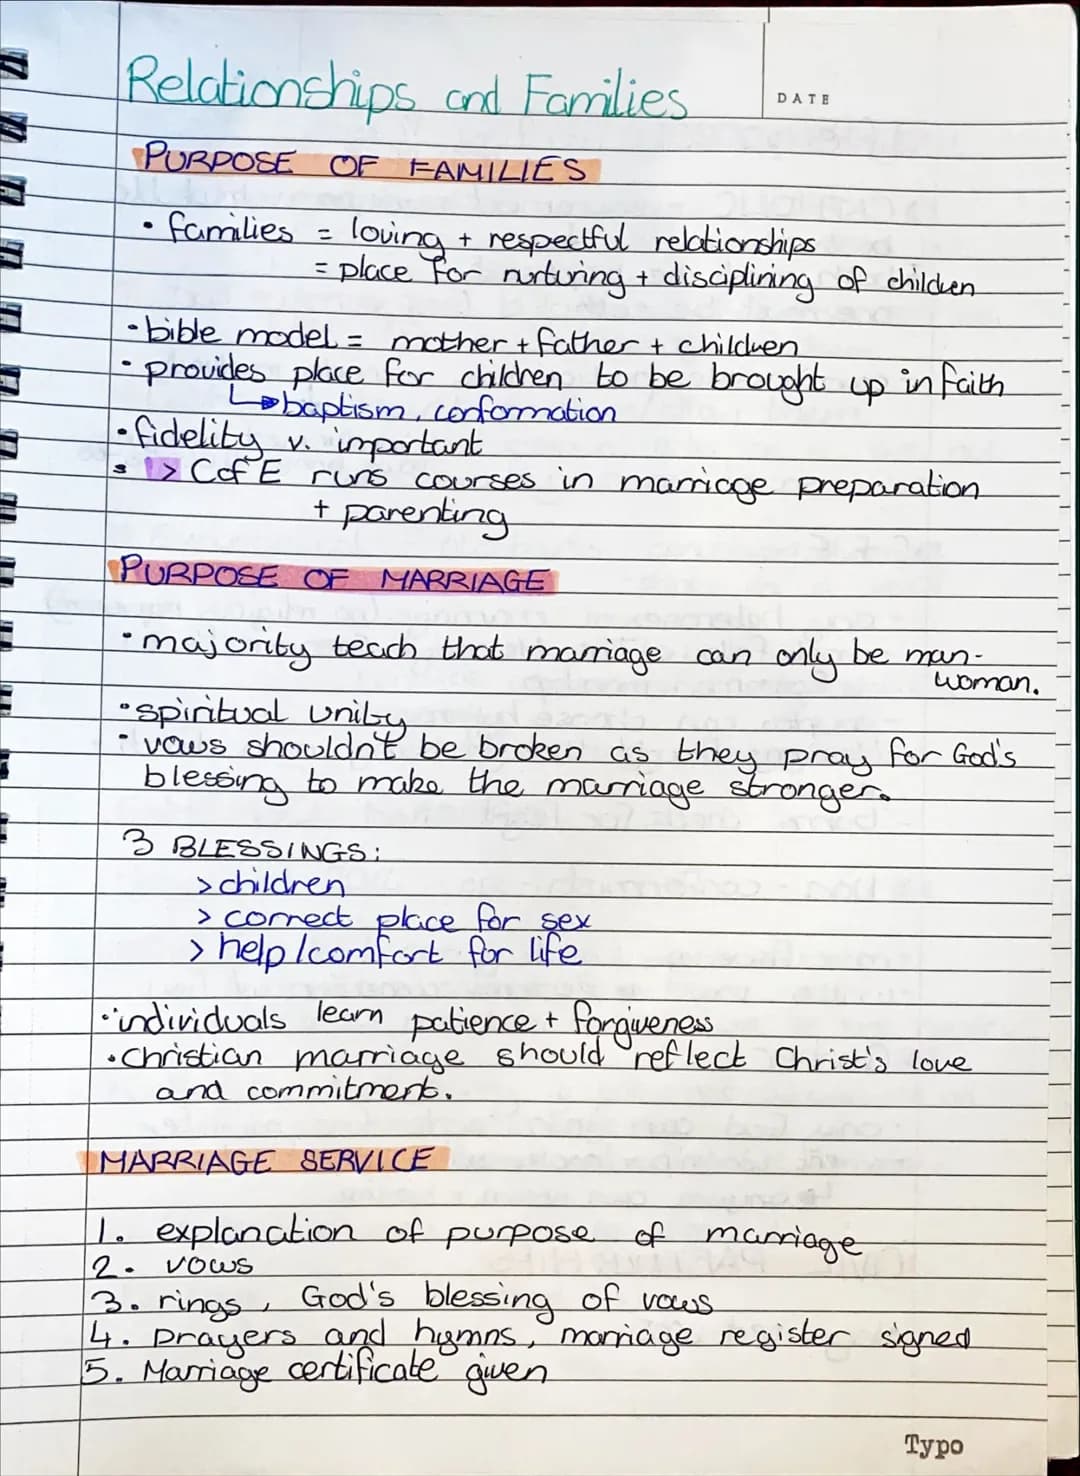 Relationships and Families
DATE
PURPOSE OF FAMILIES
• families = loving + respectful relationships
= place for nurturing + disciplining of children
• bible model = mother + father + children
• provides place for children to be brought up in faith
↳ baptism, conformation
• fidelity v. important
> CofE runs courses in marriage preparation
+ parenting
PURPOSE OF MARRIAGE
• majority teach that marriage can only be man-
woman.
• spiritual unity
• vows shouldn't be broken as they pray for God's
blessing to make the marriage stronger.
3 BLESSINGS:
> children
> correct place for sex
> help/comfort for life
• individuals learn patience + forgiveness
• Christian marriage should reflect Christ's love
and commitment.
MARRIAGE SERVICE
1. explanation of purpose of marriage
2. vows
3. rings, God's blessing of vows
4. prayers and hymns, marriage register signed
5. Marriage certificate given
Typo